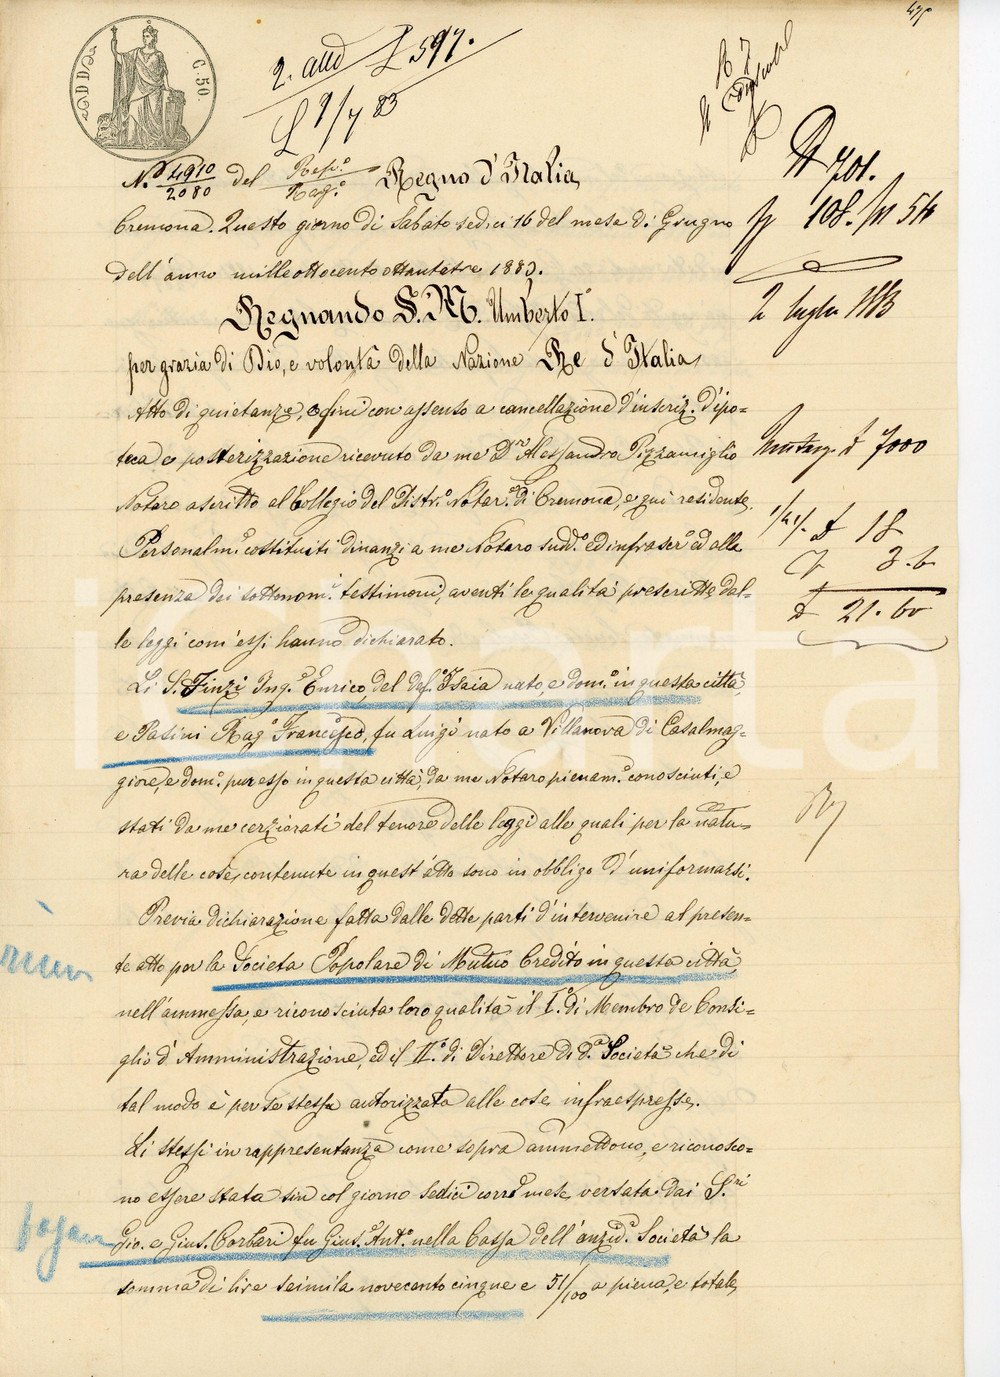 475
C. 50.
2. add £ 597.
£ 9/7 83
N.° 4910/2080 del Rep.°/Rag.° Regno d'Italia
£ 701.
Cremona. Questo giorno di Sabato sedici 16 del mese di Giugno
108. 54
dell'anno mille ottocento ottantatre 1883.
Regnando S. M. Umberto I.°
2 luglio 1883
per grazia di Dio, e volontà della Nazione Re d'Italia
Atto di quietanza, e fini con assenso a cancellazione d'inscriz. d'ipo=
teca e posterizzazione ricevuto da me D.r Alessandro Pizzamiglio
£ 7000
Notaro ascritto al Collegio del Distr.° Notar.e di Cremona, e qui residente.
Personalm.e costituiti dinanzi a me Notaro sudd.° ed infrascr.° ed alla
£ 18
3. 6
presenza dei sottonom.i testimoni, aventi le qualità prescritte dal=
£ 21. 60
le leggi com'essi hanno dichiarato.
Li S. Finzi Ing.e Enrico del def.° Isaia nato, e dom.° in questa città,
e Pasini Rag.e Francesco, fu Luigi nato a Villanova di Casalmag=
giore, e dom.° pur esso in questa città, da me Notaro pienam.e conosciuti, e
stati da me cerziorati del tenore delle leggi alle quali per la natu=
ra delle cose contenute in quest'atto sono in obbligo d'uniformarsi.
Previa dichiarazione fatta dalle dette parti d'intervenire al presen=
te atto per la Società Popolare di Mutuo Credito in questa città,
nell'ammessa, e riconosciuta loro qualità il I.° di Membro del Consi=
glio d'Amministrazione, ed il II.° di Direttore di d.a Società che di
tal modo è per se stessa autorizzata alle cose infraespresse.
Li stessi in rappresentanza come sopra ammettono, e riconosco=
no essere stata sin col giorno sedici corr.e mese versata dai S.ri
Gio. e Gius. Barbari fu Gius. Ant.° nella Cassa dell'anzid.a Società la
somma di lire seimila novecento cinque e 51/100 a piena, e totale